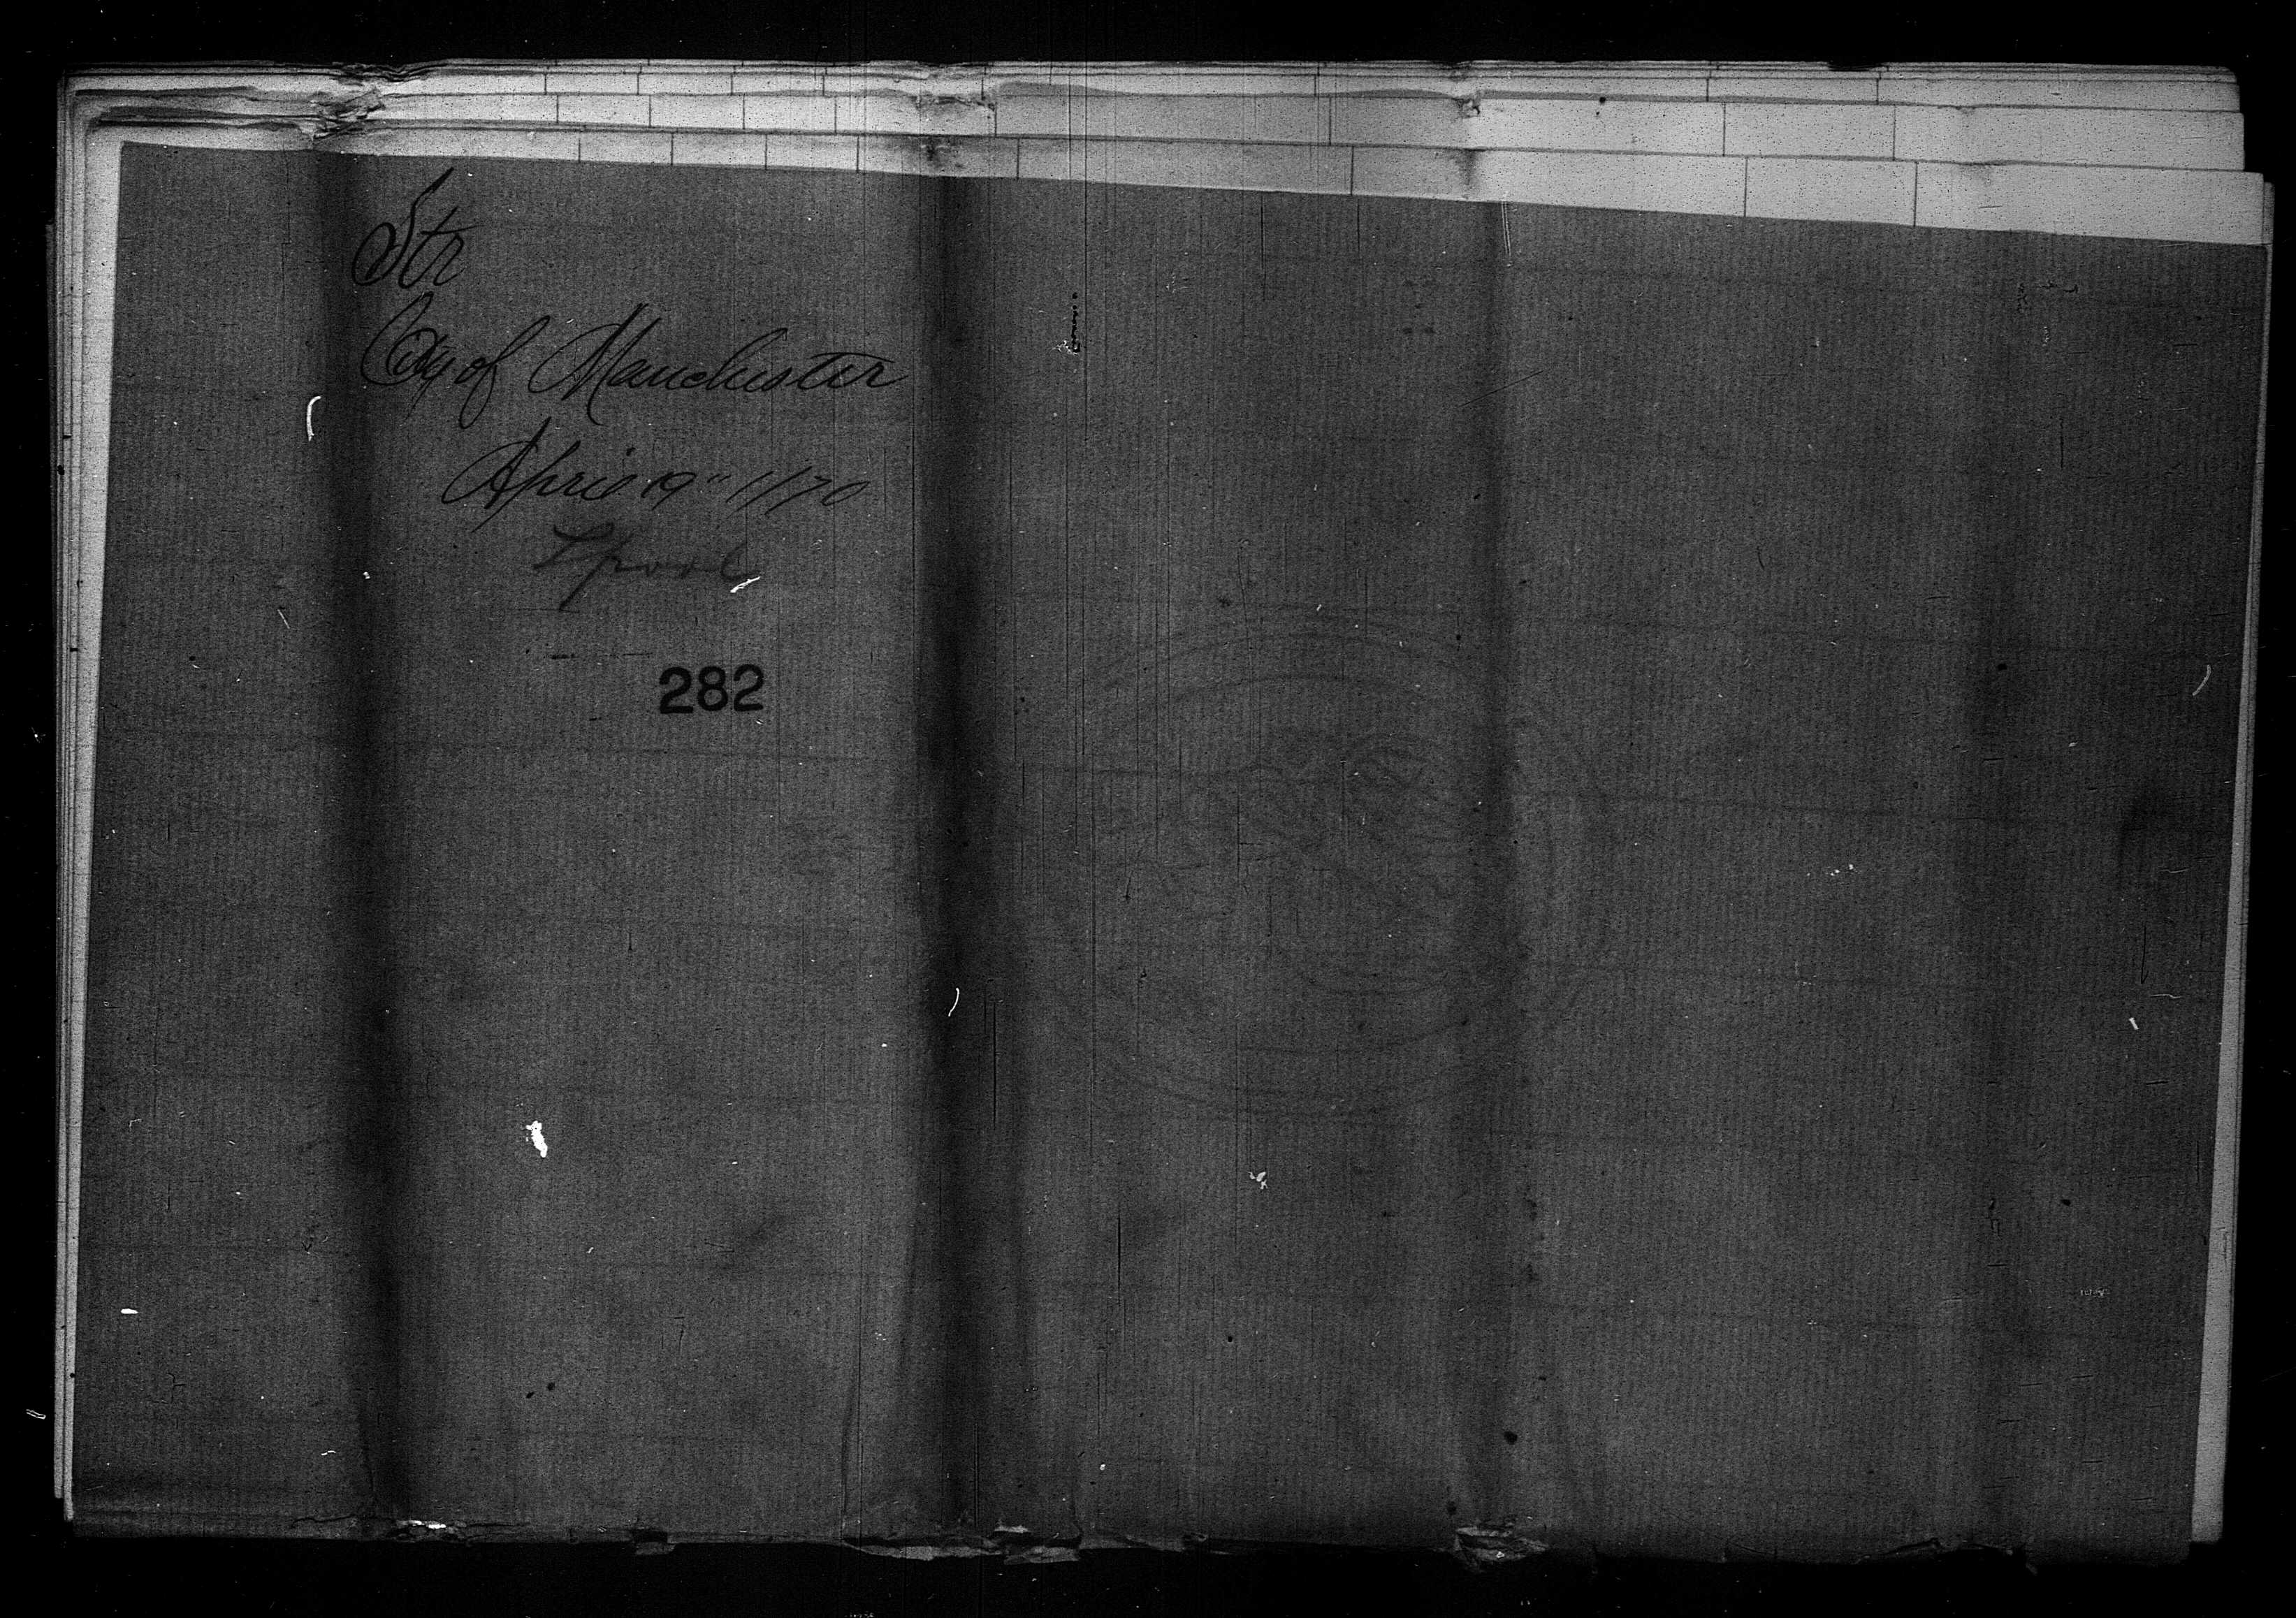 Str
City of Manchester
April 19" 1870
Lpool
282